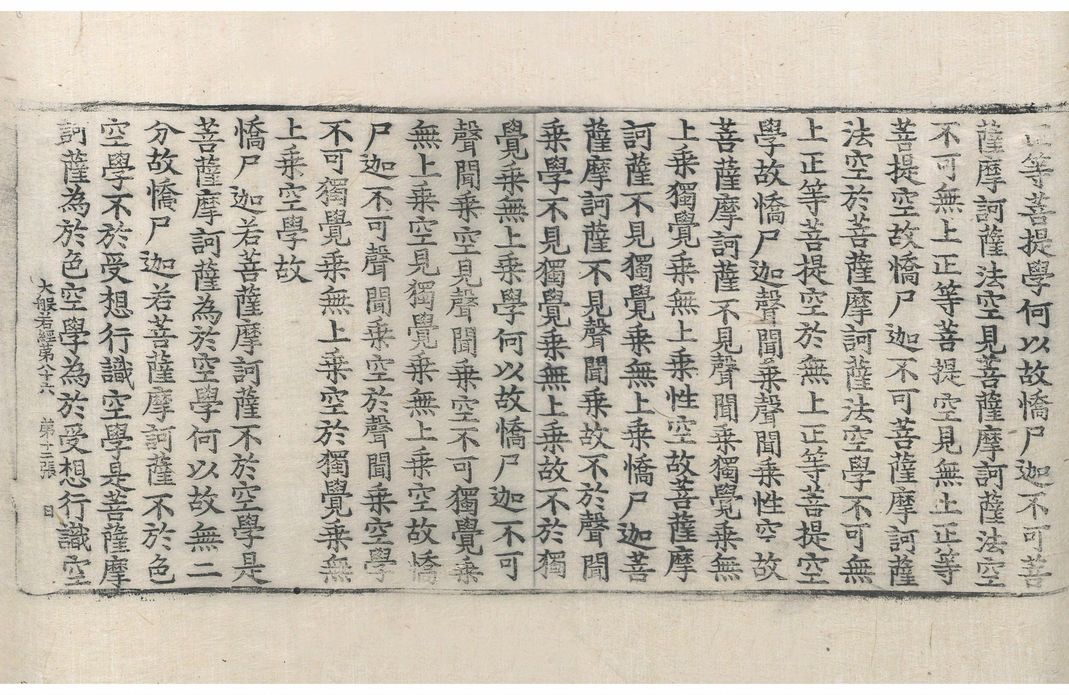 正等菩提學何以故憍尸迦不可菩
薩摩訶薩法空見菩薩摩訶薩法空
不可無上正等菩提空見無上正等
菩提空故憍尸迦不可菩薩摩訶薩
法空於菩薩摩訶薩法空學不可無
上正等菩提空於無上正等菩提空
學故憍尸迦聲聞乘聲聞乘性空故
菩薩摩訶薩不見聲聞乘獨覺乘無
上乘獨覺乘無上乘性空故菩薩摩
訶薩不見獨覺乘無上乘憍尸迦菩
薩摩訶薩不見聲聞乘故不於聲聞
乘學不見獨覺乘無上乘故不於獨
覺乘無上乘學何以故憍尸迦不可
聲聞乘空見聲聞乘空不可獨覺乘
無上乘空見獨覺乘無上乘空故憍
尸迦不可聲聞乘空於聲聞乘空學
不可獨覺乘無上乘空於獨覺乘無
上乘空學故
憍尸迦若菩薩摩訶薩不於空學是
菩薩摩訶薩為於空學何以故無二
分故憍尸迦若菩薩摩訶薩不於色
空學不於受想行識空學是菩薩摩
訶薩為於色空學為於受想行識空
大般若經第八十六 第十二張 日